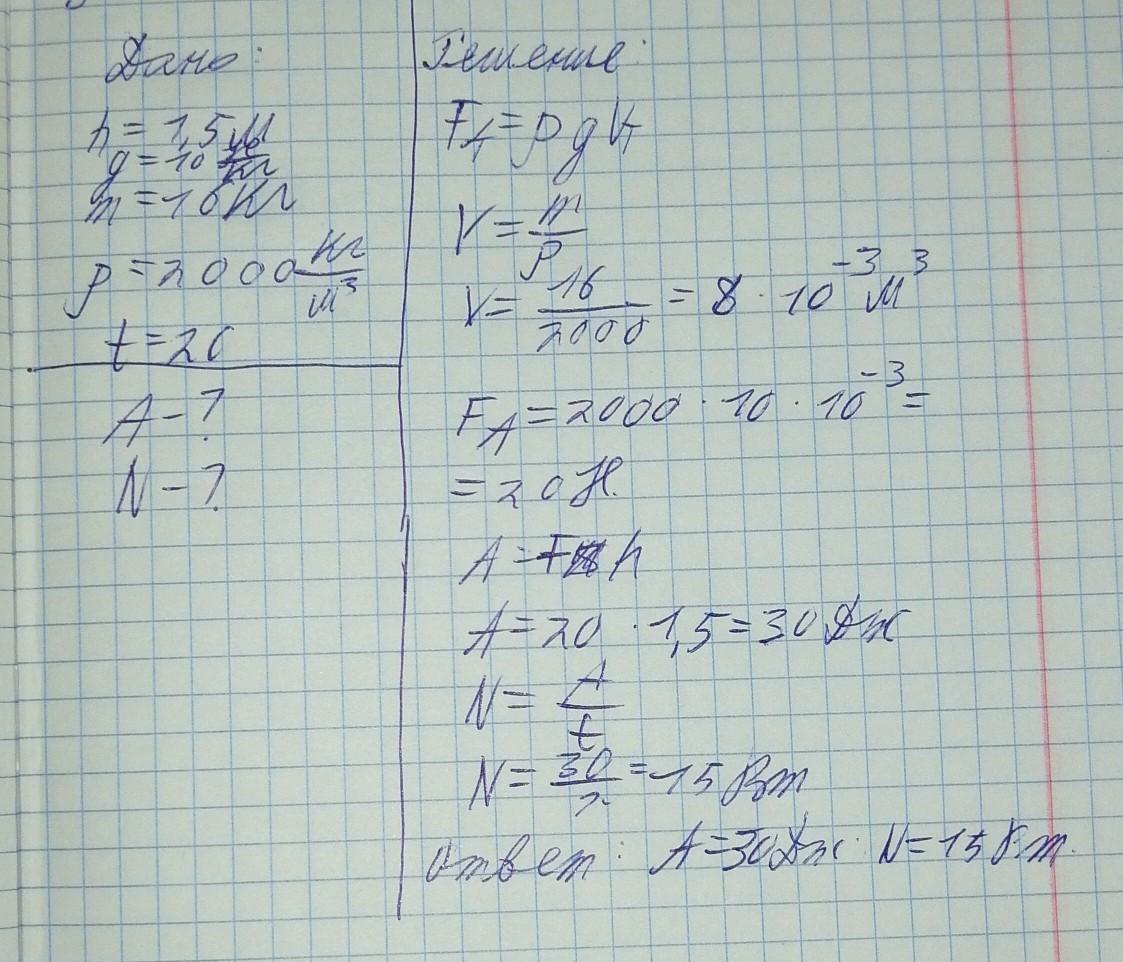 Дано:
h = 1,5 м
g = 10 Н/кг
m = 16 кг
ρ = 2000 кг/м³
t = 2с
A - ?
N - ?
Решение:
F_A = ρ g V_T
V = m/ρ
V = 16/2000 = 8 · 10⁻³ м³
F_A = 2000 · 10 · 10⁻³ =
= 20 Н.
A = F h
A = 20 · 1,5 = 30 Дж
N = A/t
N = 30/2 = 15 Вт
Ответ: A = 30 Дж. N = 15 Вт.